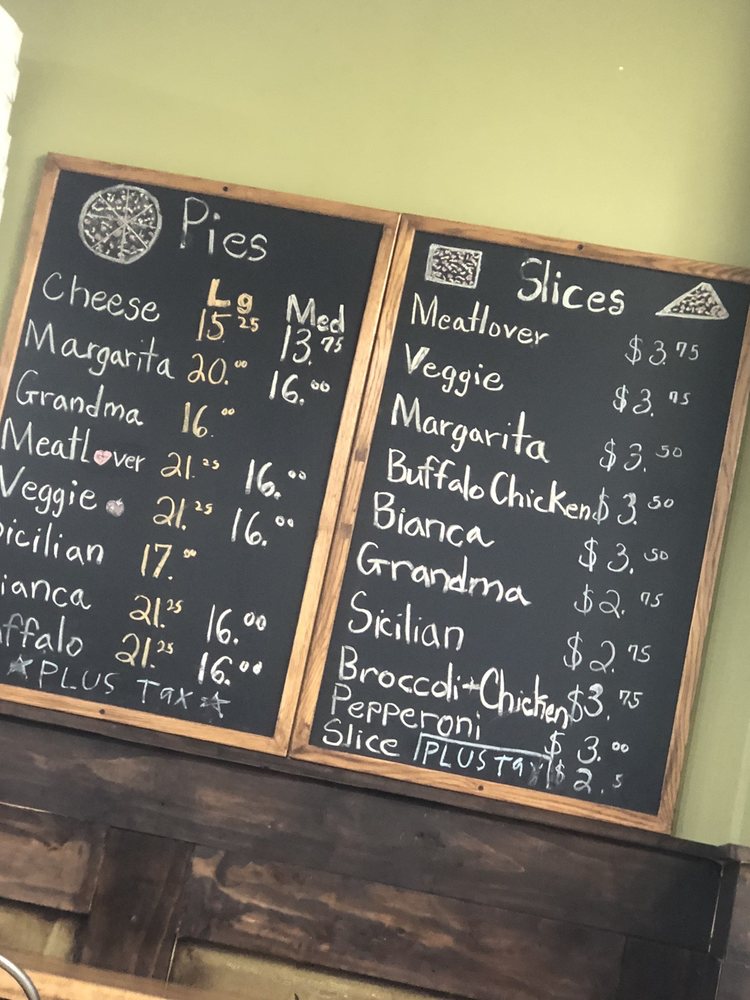 Pies
Lg Med
Cheese 15.25 13.75
Margarita 20.00 16.00
Grandma 16.00
Meatlover 21.25 16.00
Veggie 21.25 16.00
icilian 17.00
ianca 21.25 16.00
ffalo 21.25 16.00
PLUS Tax
Slices
Meatlover $3.75
Veggie $3.75
Margarita $3.50
Buffalo Chicken $3.50
Bianca $3.50
Grandma $2.75
Sicilian $2.75
Broccoli+Chicken $3.75
Pepperoni $3.00
Slice PLUS Tax $2.5